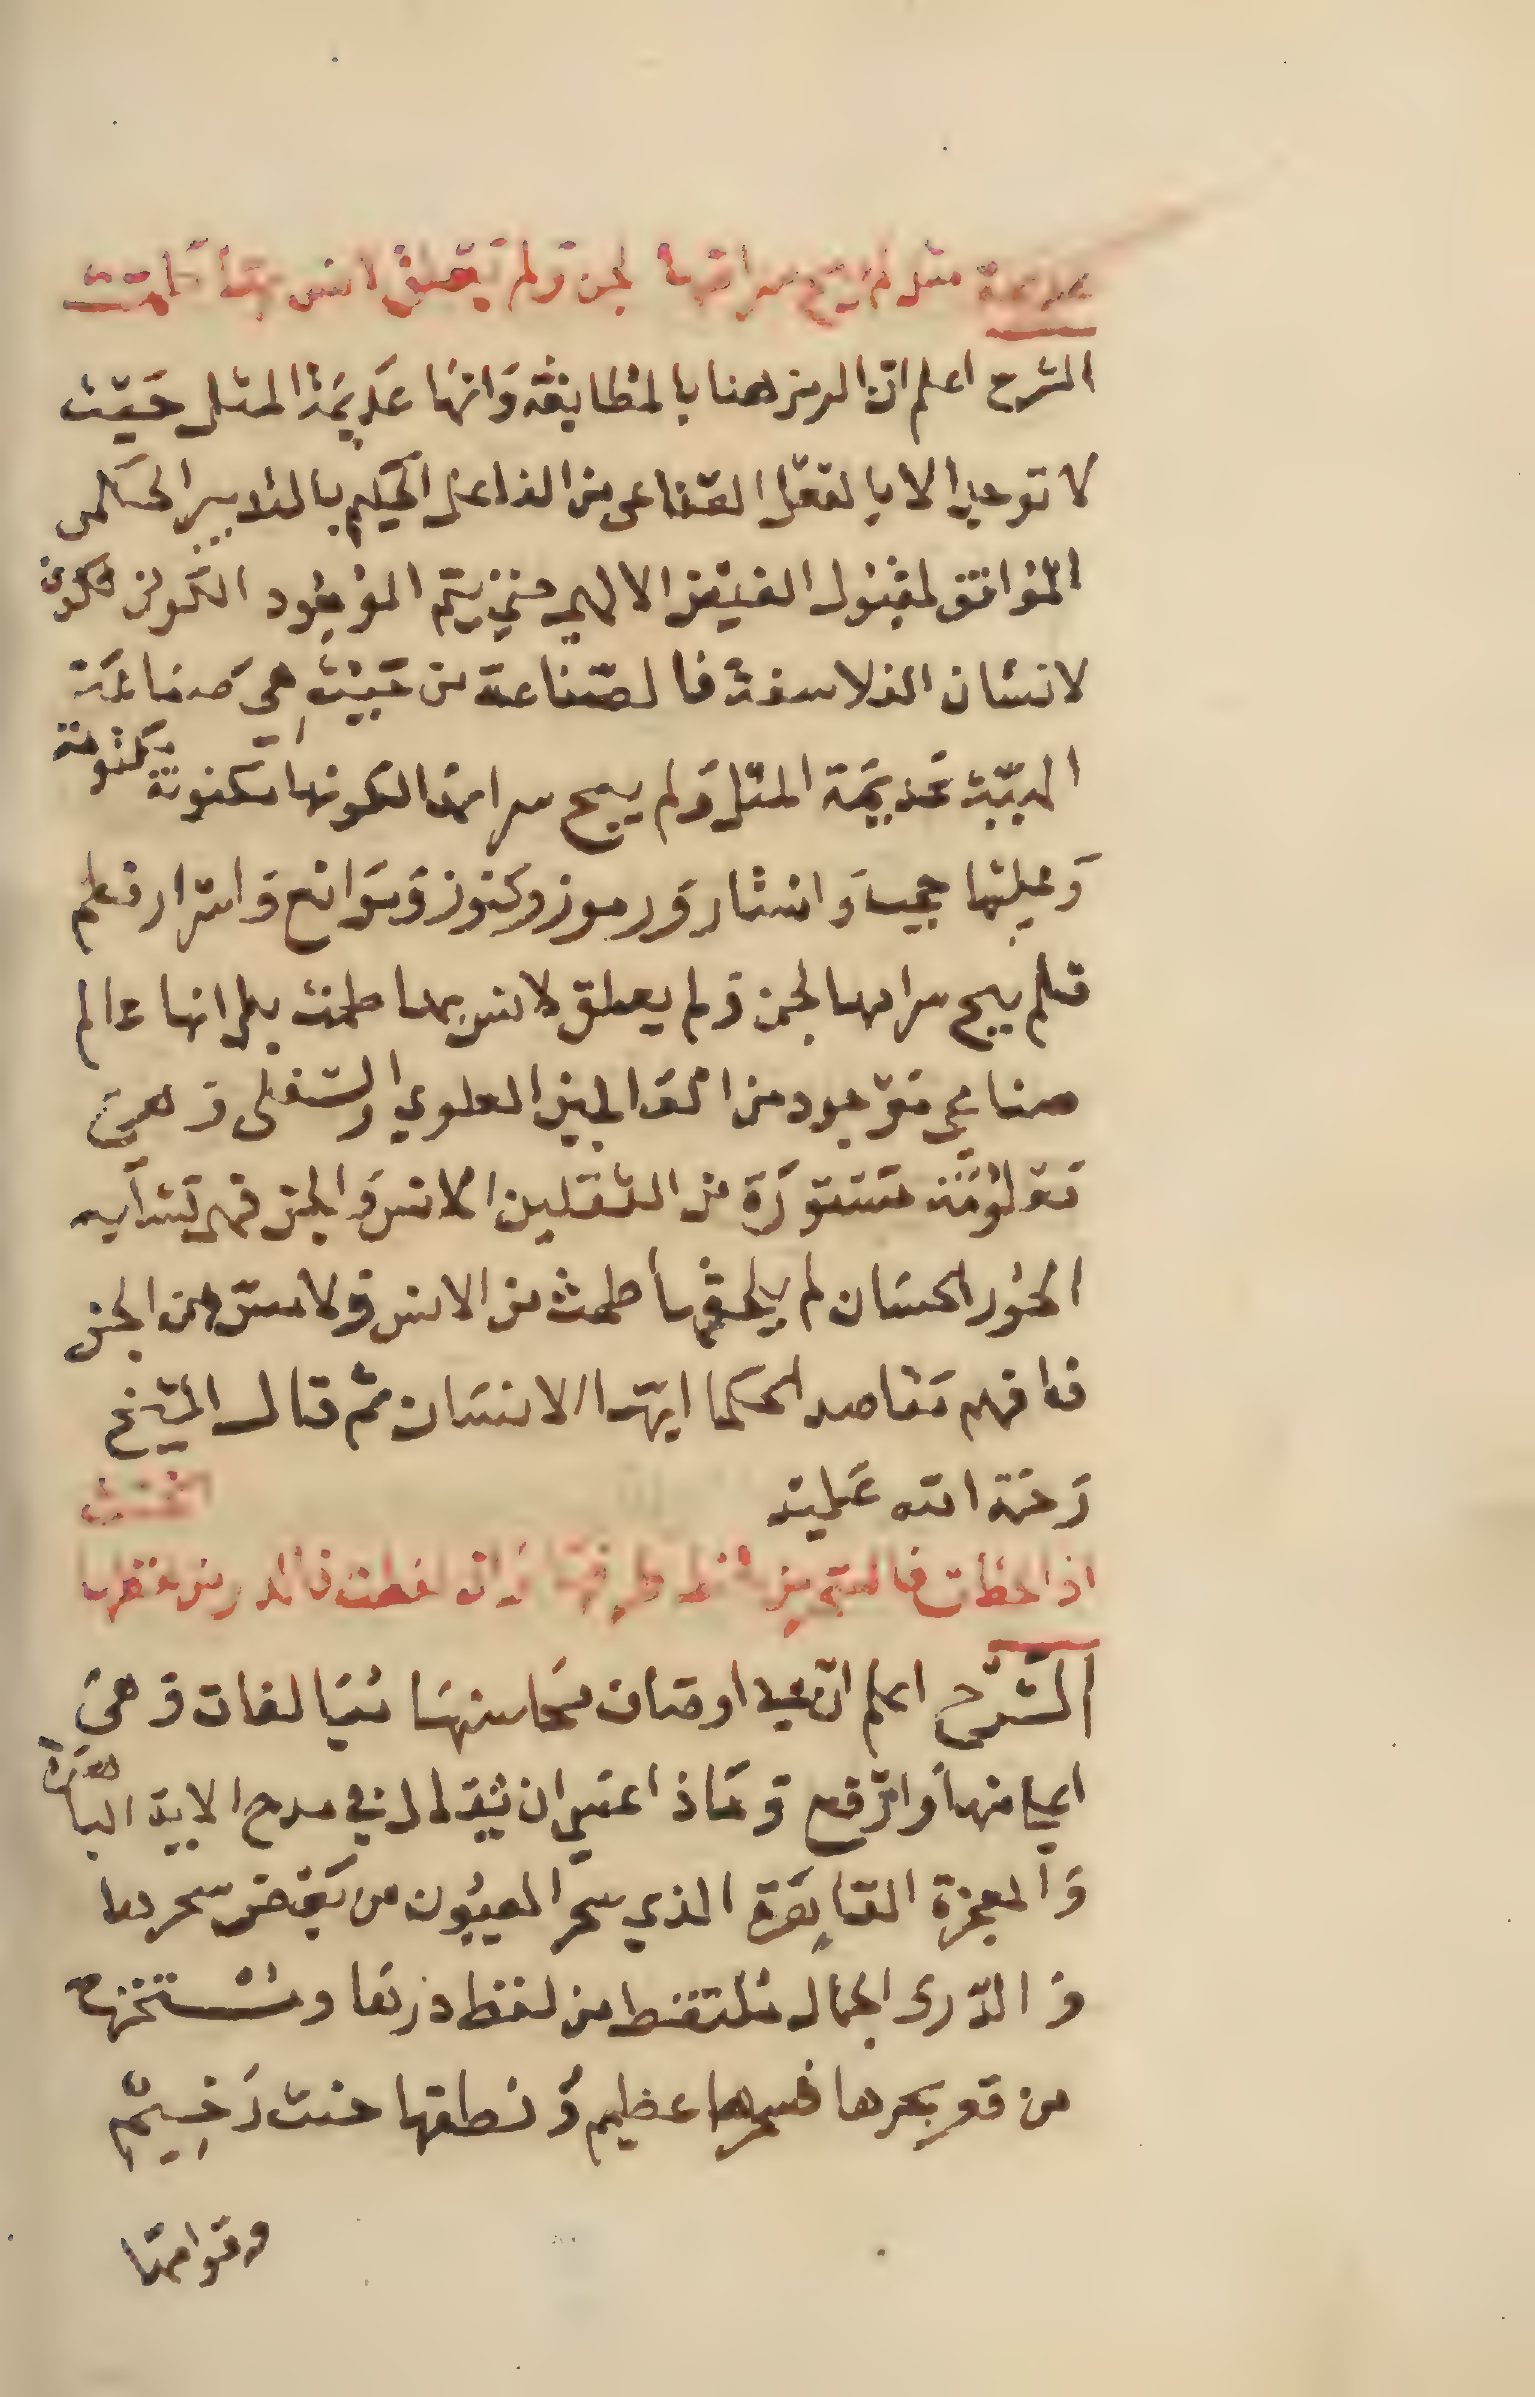 عديمة مثل لم يبح سرامها لجن ولم يعلق لانس بها طمث
الشرح اعلم ان الرمز هنا بالمطابقة وانها عديمة المثل حيث
لا توجد الا بالفعل الصناعى من الفاعل الحكيم بالتدبير الحكمى
الموافق لقبول الفيض الالهي حتى يتم الموجود الكونى مكون
لانسان الفلاسفة فالصناعة من حيث هي صناعة
الهية عديمة المثل ولم يبح سرامها لكونها مكنونة مكتومة
وعليها حجب واستار ورموز وكنوز وموانع واسرار فلم
فلم يبح سرامها لجن ولم يعلق لانس بها طمث بل انها عالم
صناعي موجود من العالمين العلوي والسفلى وهي
مستورة من الثقلين الانس والجن فهي تشابه
الحور الحسان لم يلحقها طمث من الانس ولا مس من الجن
فافهم مقاصد الحكما ايها الانسان ثم قال الشيخ
رحمة الله عليه
اذا لحظت فالسحر من لحظ طرفها وان لفظت فالدر من
الشرح اعلم ان اوصاف محاسنها وهي
اعلا منها وارفع وماذا عسى ان يقال في مدح الاية الباهرة
والمعجزة القاهرة الذي سحر العيون من بعض سحرها
والدرى الجمال ملتقط من لفظ درها ومستخرج
من قعر بحرها فسحرها عظيم ونطقها خنث رخيم
وقوامها